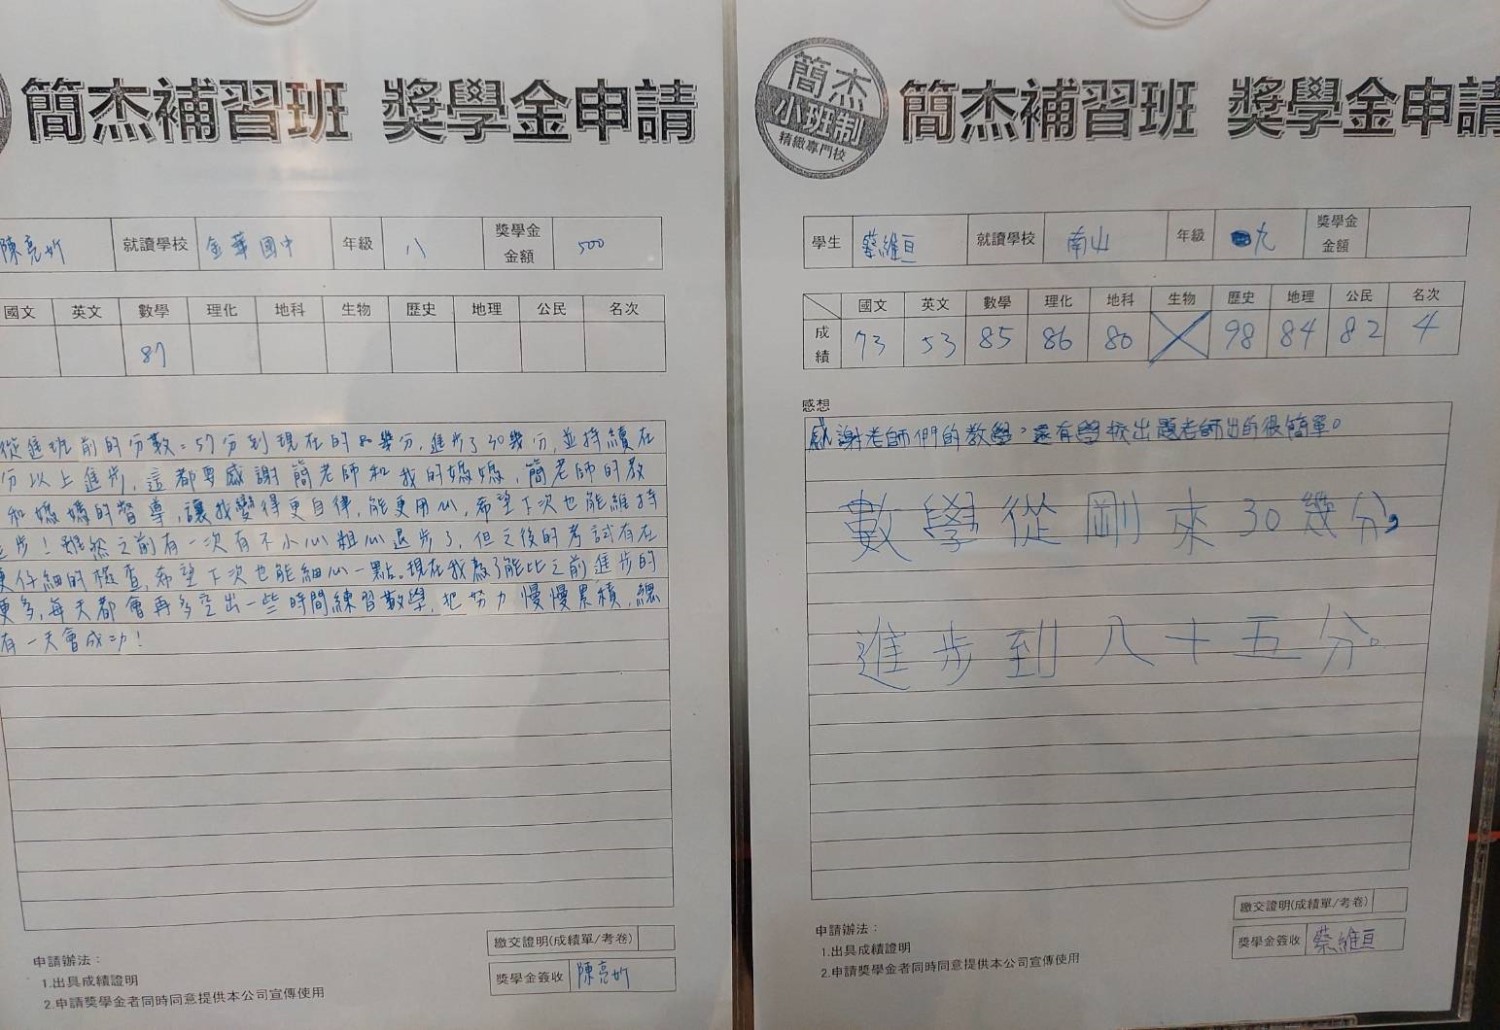 簡杰補習班 獎學金申請
陳亮妡 就讀學校 金華國中 年級 八 獎學金金額 500
國文 英文 數學 理化 地科 生物 歷史 地理 公民 名次
87
從進班前的分數=57分到現在的80幾分,進步了30幾分,並持續在
分以上進步,這都要感謝簡老師和我的媽媽,簡老師的教
和媽媽的督導,讓我變得更自律,能更用心,希望下次也能維持
步!雖然之前有一次有不小心粗心退步了,但之後的考試有在
更仔細的檢查,希望下次也能細心一點。現在我為了能比之前進步的
更多,每天都會再多空出一些時間練習數學,把努力慢慢累積,總
有一天會成功!
繳交證明(成績單/考卷)
獎學金簽收 陳亮妡
申請辦法:
1.出具成績證明
2.申請獎學金者同時同意提供本公司宣傳使用
簡杰
小班制
精緻專門校
簡杰補習班 獎學金申請
學生 蔡維亘 就讀學校 南山 年級 九 獎學金金額
國文 英文 數學 理化 地科 生物 歷史 地理 公民 名次
成績 73 53 85 86 80 98 84 82 4
感想
感謝老師們的教學,還有學校出題老師出的很簡單。
數學從剛來30幾分,
進步到八十五分。
繳交證明(成績單/考卷)
獎學金簽收 蔡維亘
申請辦法:
1.出具成績證明
2.申請獎學金者同時同意提供本公司宣傳使用